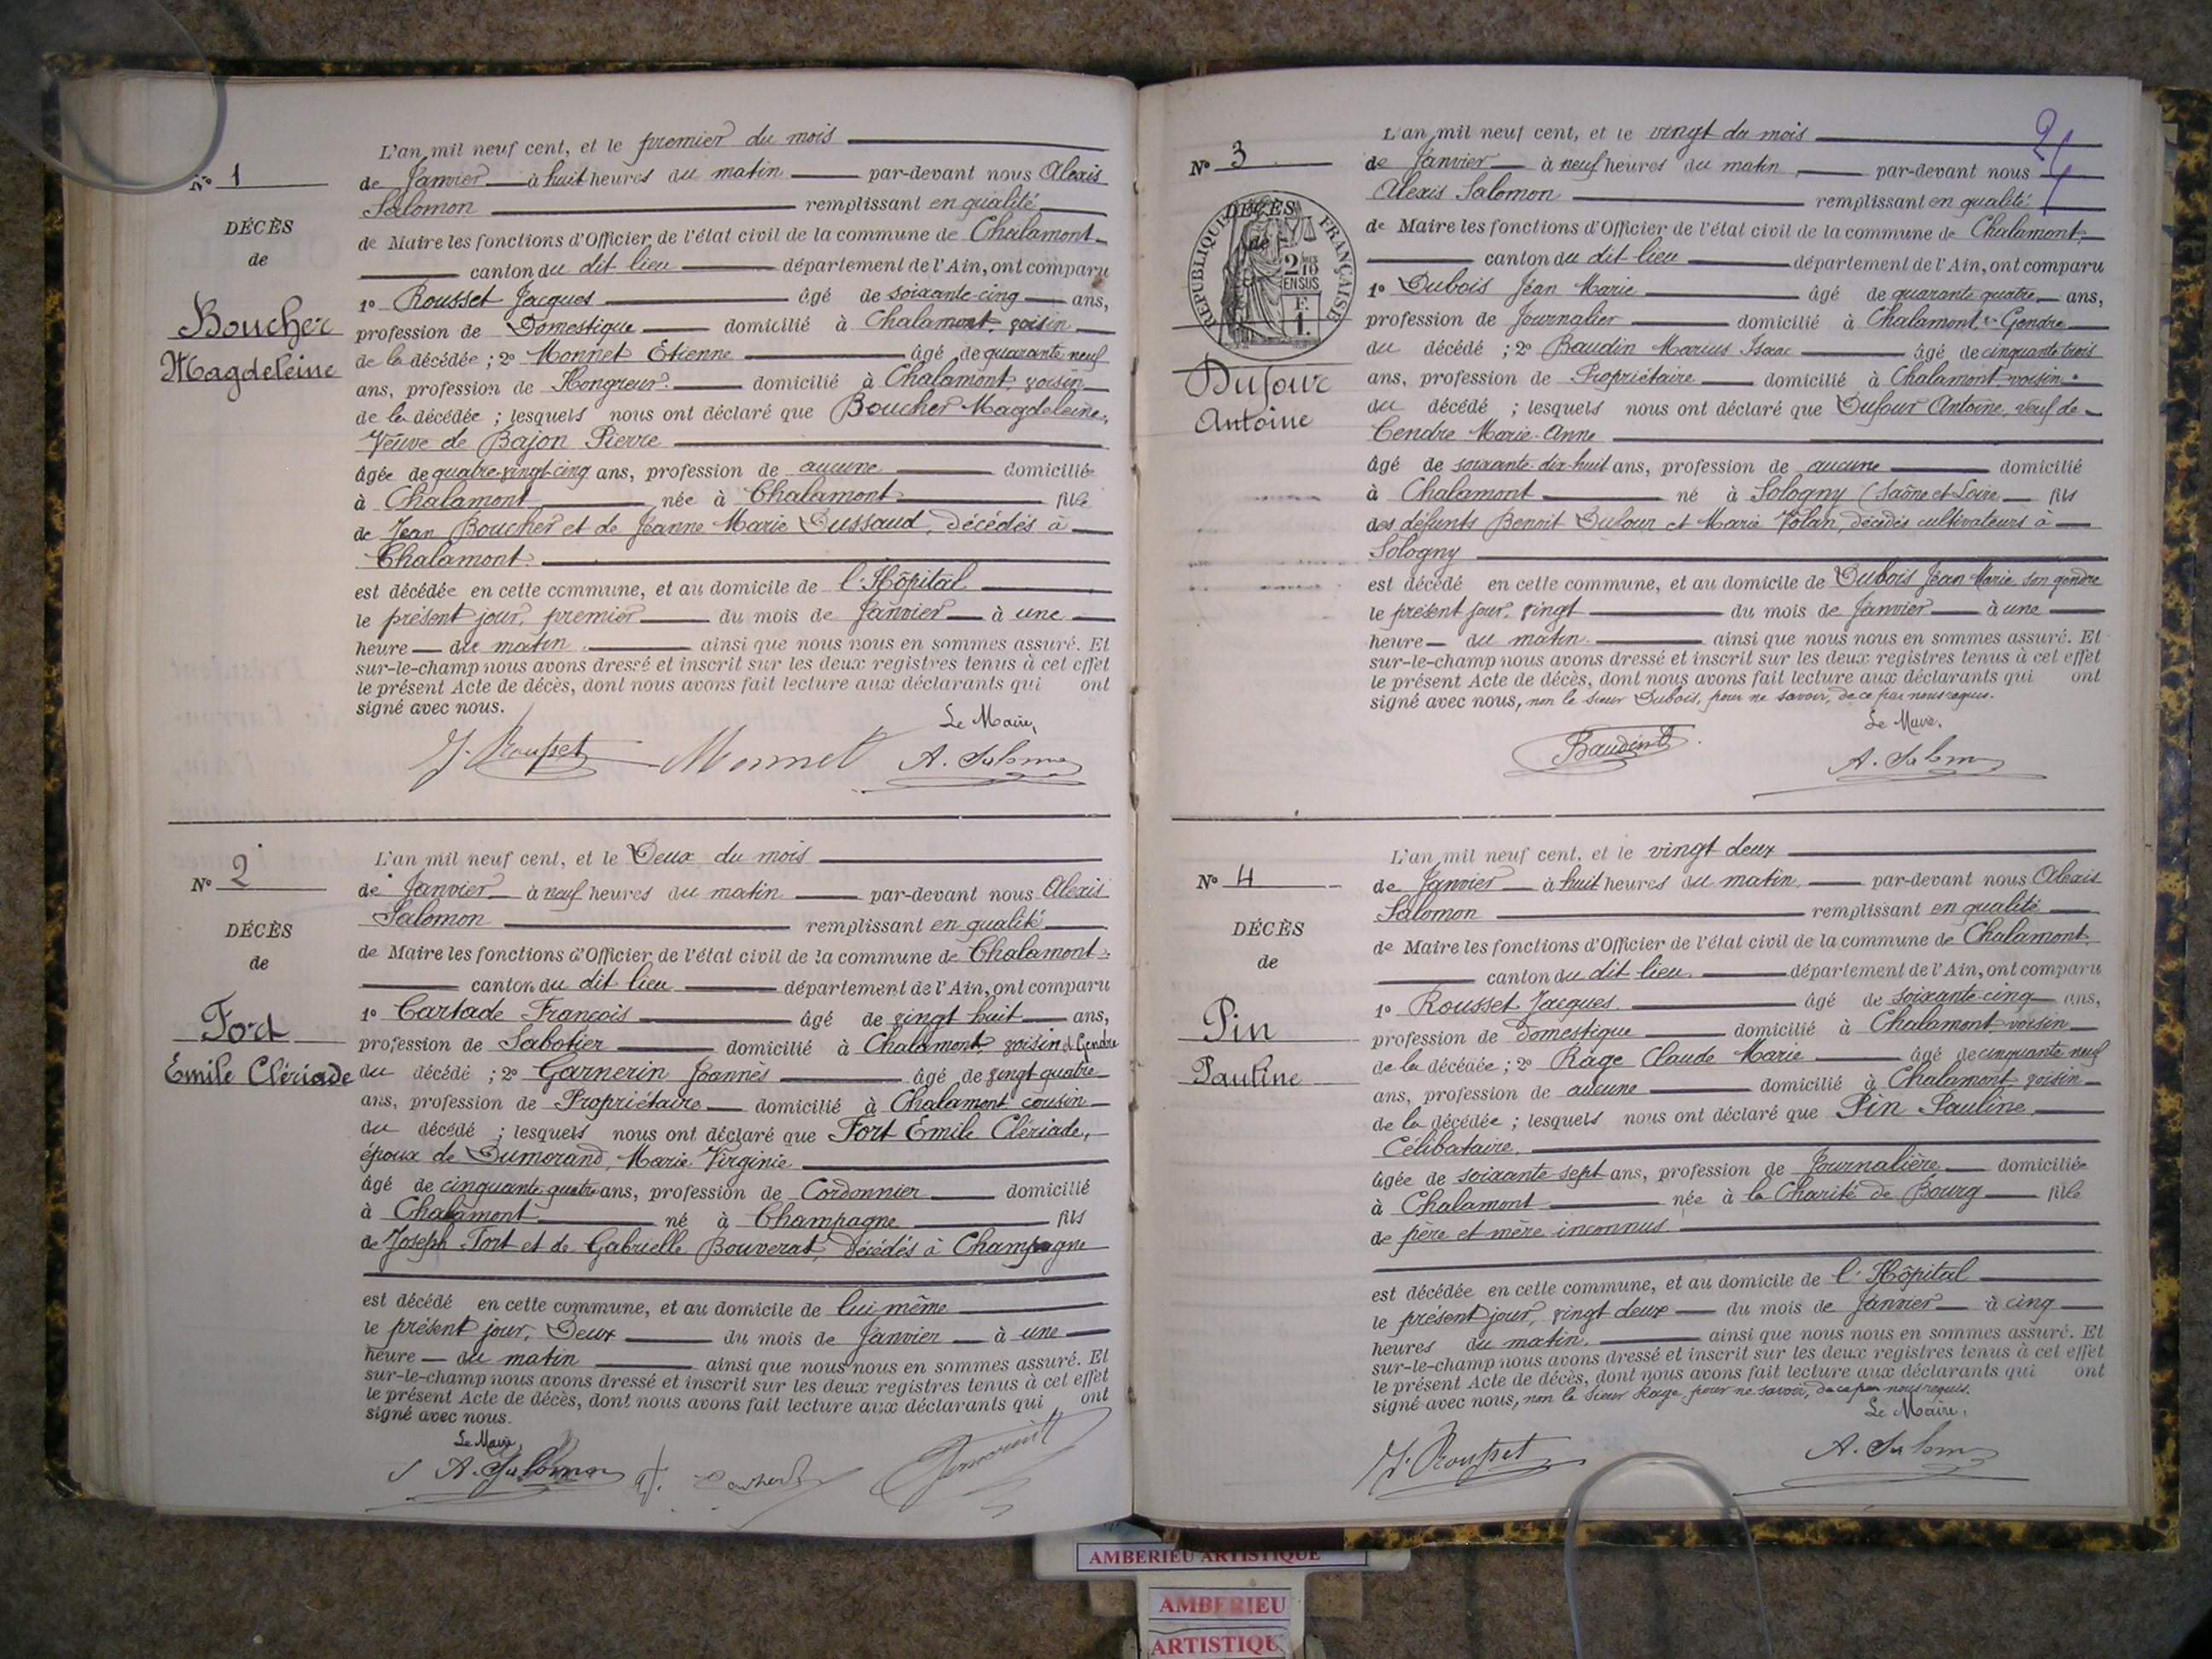 N° 1
DÉCÈS
de
Boucher
Magdeleine
L'an mil neuf cent, et le premier du mois
de Janvier à huit heures du matin par-devant nous Alexis
Salomon remplissant en qualité
de Maire les fonctions d'Officier de l'état civil de la commune de Chalamont
canton du dit lieu département de l'Ain, ont comparu
1° Rousset Jacques âgé de soixante-cinq ans,
profession de Domestique domicilié à Chalamont, voisin
de la décédée ; 2° Monnet Étienne âgé de quarante neuf
ans, profession de Hongreur domicilié à Chalamont voisin
de la décédée ; lesquels nous ont déclaré que Boucher Magdeleine,
Veuve de Bajon Pierre
âgée de quatre-vingt-cinq ans, profession de aucune domiciliée
à Chalamont née à Chalamont fille
de Jean Boucher et de Jeanne Marie Dussaud, décédés à
Chalamont
est décédée en cette commune, et au domicile de l'Hôpital
le présent jour, premier du mois de Janvier à une
heure du matin ainsi que nous nous en sommes assuré. Et
sur-le-champ nous avons dressé et inscrit sur les deux registres tenus à cet effet
le présent Acte de décès, dont nous avons fait lecture aux déclarants qui ont
signé avec nous.
Le Maire,
J. Rousset Monnet A. Salomon
N° 2
DÉCÈS
de
Fort
Emile Clériade
L'an mil neuf cent, et le Deux du mois
de Janvier à neuf heures du matin par-devant nous Alexis
Salomon remplissant en qualité
de Maire les fonctions d'Officier de l'état civil de la commune de Chalamont
canton du dit lieu département de l'Ain, ont comparu
1° Cartade François âgé de vingt huit ans,
profession de Sabotier domicilié à Chalamont, voisin et Gendre
du décédé ; 2° Garnerin Joannès âgé de vingt quatre
ans, profession de Propriétaire domicilié à Chalamont cousin
du décédé ; lesquels nous ont déclaré que Fort Emile Clériade,
époux de Dumorand, Marie Virginie
âgé de cinquante-quatre ans, profession de Cordonnier domicilié
à Chalamont né à Champagne fils
de Joseph Fort et de Gabrielle Bouverat, décédés à Champagne
est décédé en cette commune, et au domicile de lui même
le présent jour, Deux du mois de Janvier à une
heure du matin ainsi que nous nous en sommes assuré. Et
sur-le-champ nous avons dressé et inscrit sur les deux registres tenus à cet effet
le présent Acte de décès, dont nous avons fait lecture aux déclarants qui ont
signé avec nous.
Le Maire,
A. Salomon
N° 3
DÉCÈS
de
RÉPUBLIQUE FRANÇAISE
2/10 EN SUS
F. 1.
Dufour
Antoine
L'an mil neuf cent, et le vingt du mois
de Janvier à neuf heures du matin par-devant nous
Alexis Salomon remplissant en qualité
de Maire les fonctions d'Officier de l'état civil de la commune de Chalamont,
canton du dit lieu département de l'Ain, ont comparu
1° Dubois Jean Marie âgé de quarante quatre ans,
profession de Journalier domicilié à Chalamont Gendre
du décédé ; 2° Baudin Marius Isaac âgé de cinquante trois
ans, profession de Propriétaire domicilié à Chalamont voisin
du décédé ; lesquels nous ont déclaré que Dufour Antoine, veuf de
Cendre Marie-Anne
âgé de soixante-dix-huit ans, profession de aucune domicilié
à Chalamont né à Sologny (Saône et Loire fils
des défunts Benoit Dufour et Marie Volan, décédés cultivateurs à
Sologny
est décédé en cette commune, et au domicile de Dubois Jean Marie son gendre
le présent jour, vingt du mois de Janvier à une
heure du matin ainsi que nous nous en sommes assuré. Et
sur-le-champ nous avons dressé et inscrit sur les deux registres tenus à cet effet
le présent Acte de décès, dont nous avons fait lecture aux déclarants qui ont
signé avec nous, non le sieur Dubois, pour ne savoir, de ce par nous requis.
Le Maire.
Baudin A. Salomon
N° 4
DÉCÈS
de
Pin
Pauline
L'an mil neuf cent, et le vingt deux
de Janvier à huit heures du matin, par-devant nous Alexis
Salomon remplissant en qualité
de Maire les fonctions d'Officier de l'état civil de la commune de Chalamont
canton du dit lieu département de l'Ain, ont comparu
1° Rousset Jacques âgé de soixante-cinq ans,
profession de domestique domicilié à Chalamont voisin
de la décédée ; 2° Rage Claude Marie âgé de cinquante neuf
ans, profession de aucune domicilié à Chalamont voisin
de la décédée ; lesquels nous ont déclaré que Pin Pauline
Célibataire.
âgée de soixante sept ans, profession de Journalière domiciliée
à Chalamont née à la Charité de Bourg fille
de père et mère inconnus
est décédée en cette commune, et au domicile de l'Hôpital
le présent jour, vingt deux du mois de Janvier à cinq
heures du matin, ainsi que nous nous en sommes assuré. Et
sur-le-champ nous avons dressé et inscrit sur les deux registres tenus à cet effet
le présent Acte de décès, dont nous avons fait lecture aux déclarants qui ont
signé avec nous, non le sieur Rage, pour ne savoir, de ce par nous requis.
Le Maire,
J. Rousset A. Salomon
AMBERIEU ARTISTIQUE
AMBERIEU
ARTISTIQU